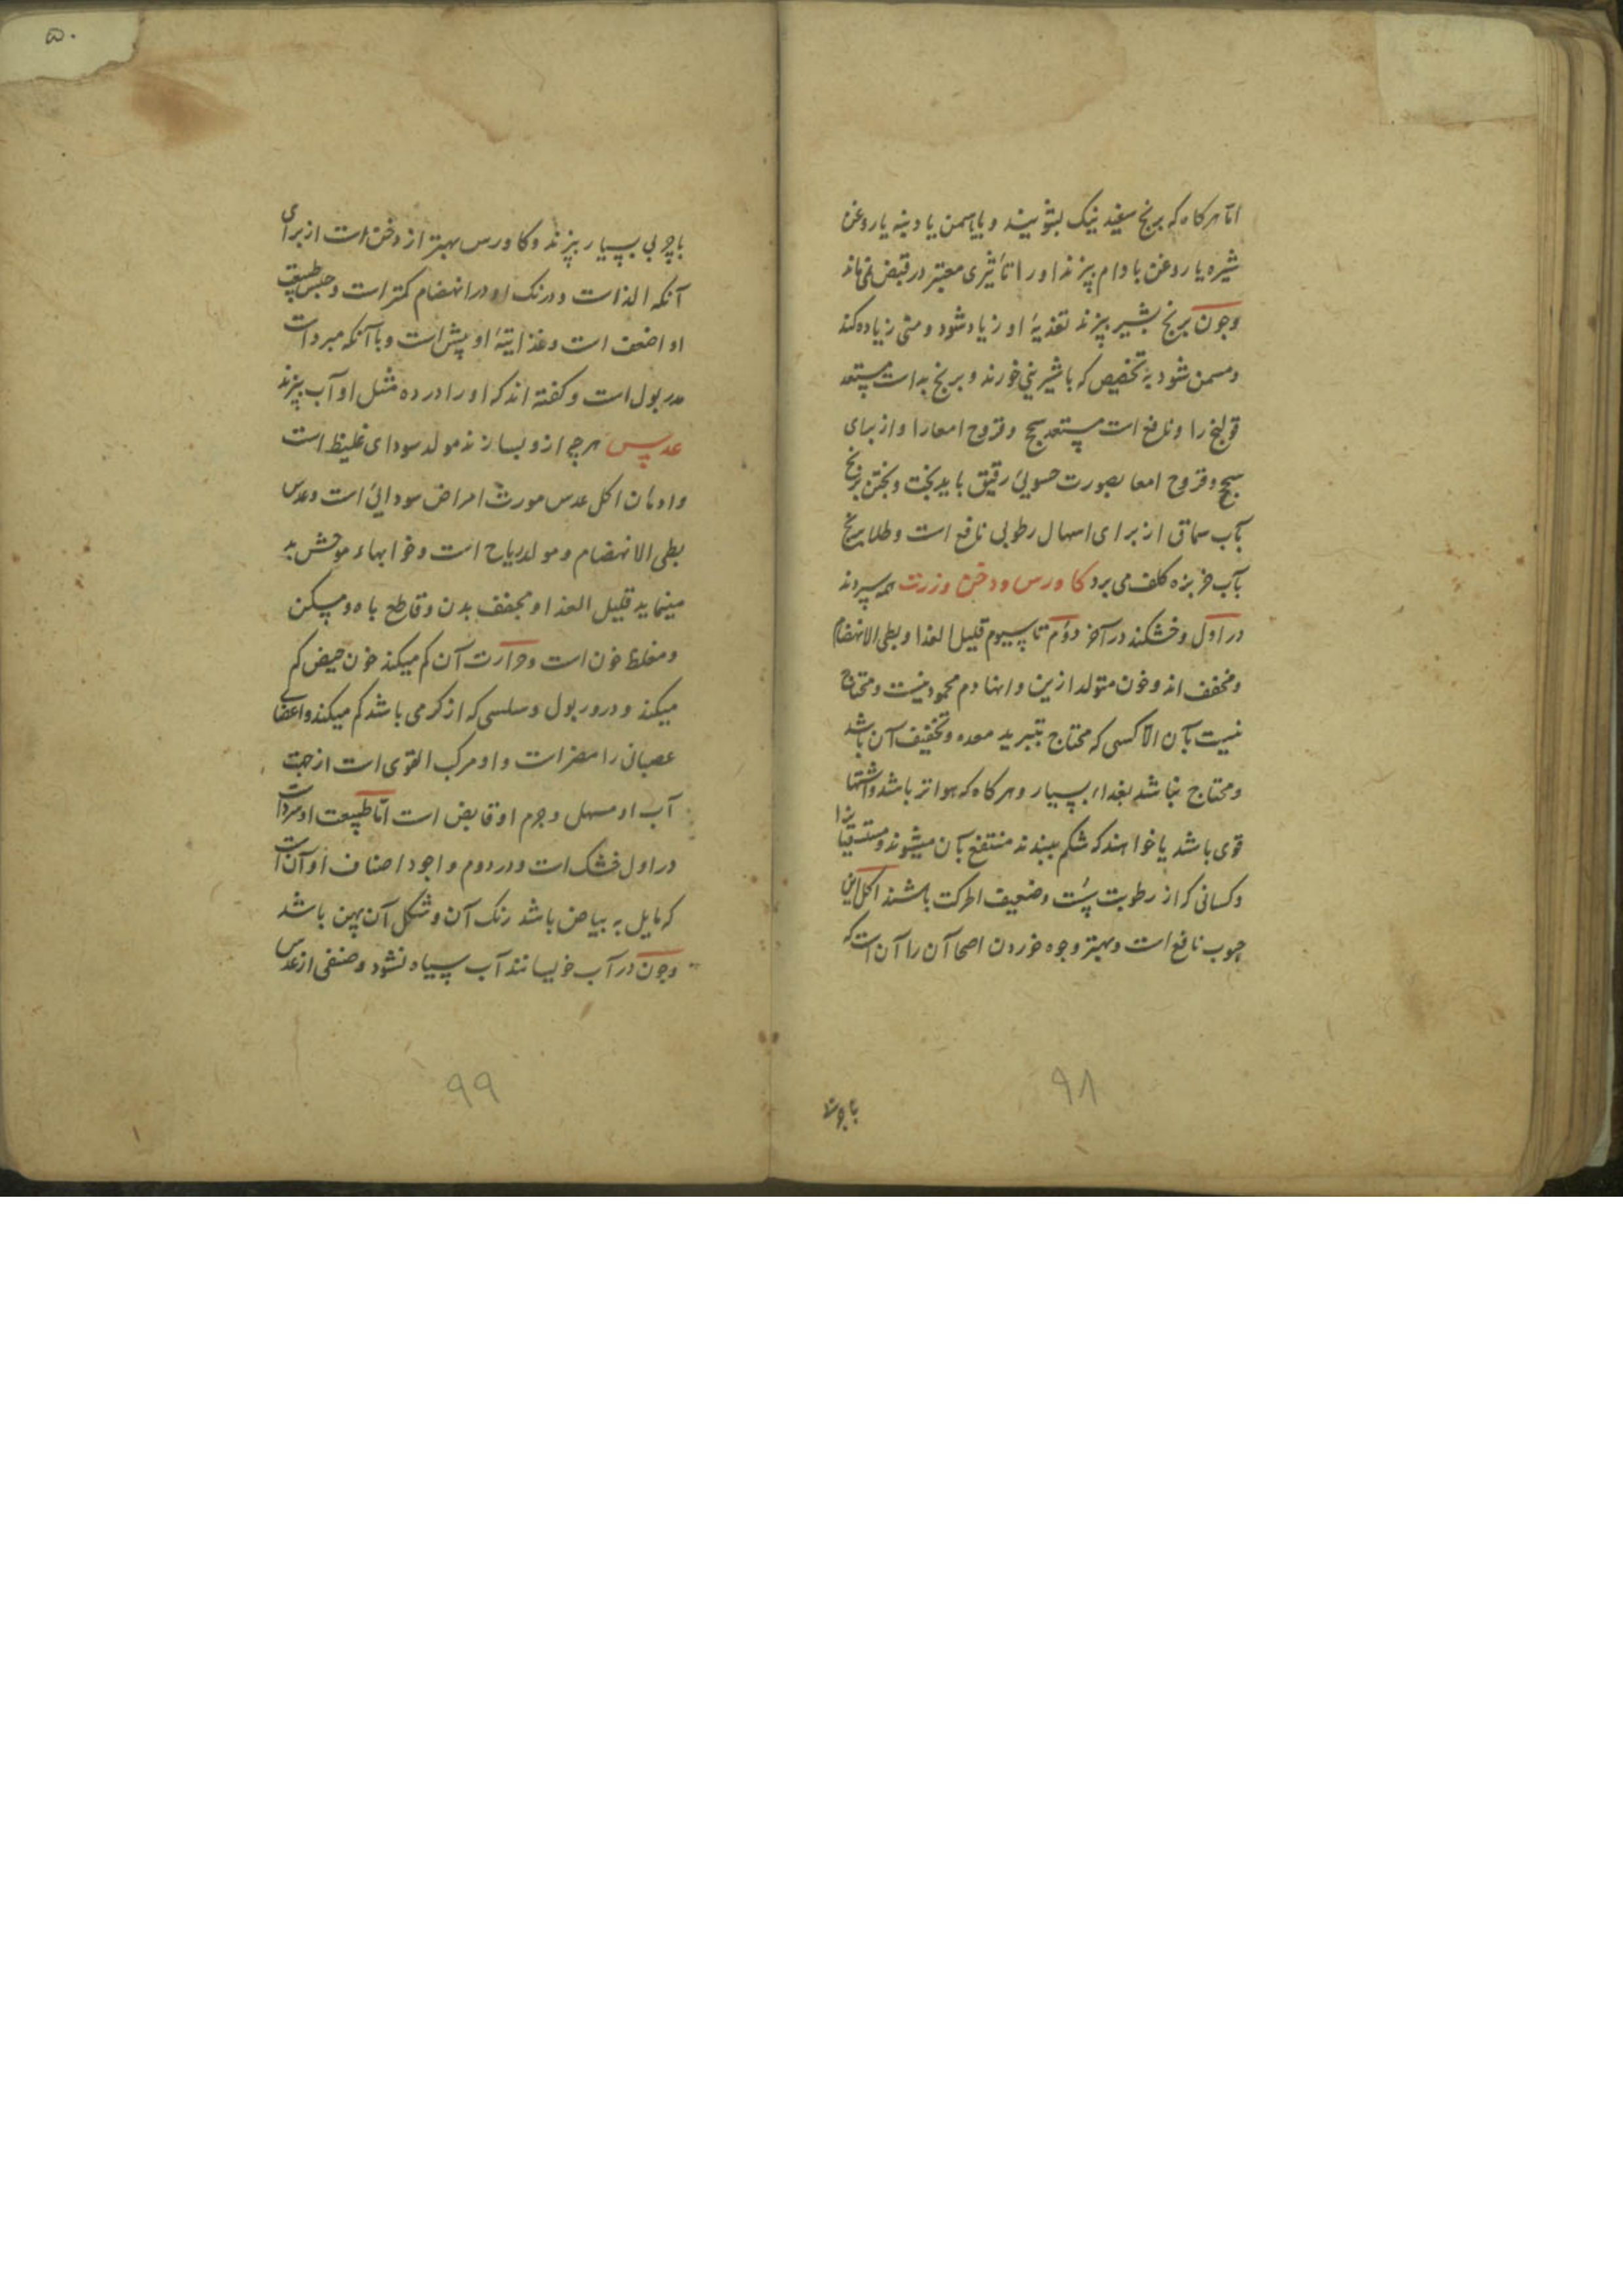 اما هرکاه که برنج سفید نیک بشویند و باسمن یا دنبه یا روغن
شیره یا روغن بادام پزند اورا تأثیری معتبر در قبض نمی ماند
وچون برنج بشیر پزند تغذیهٔ او زیاد شود و منی زیاده کند
ومسمن شود به تخصیص که باشیرینی خورند و برنج بد است مستعد
قولنج را و نافع است مستعد سحج وقروح امعارا و از برای
سحج وقروح امعا بصورت حسویی رقیق باید پخت وپختن برنج
بآب سماق از برای اسهال رطوبی نافع است وطلا برنج
بآب خربزه کلف می برد کاورس ودخن وزرت همه سردند
در اول وخشکند در آخر دوم تا سیوم قلیل الغذا وبطی الانهضام
ومجفف اند وخون متولد ازین دانها دم محمود نیست ومحتاج
نیست بآن الا کسی که محتاج بتبرید معده وتجفیف آن باشد
ومحتاج نباشد بغذاء بسیار وهرکاه که هوا تر باشد واشتها
قوی باشد یا خواهند که شکم ببندند منتفع بآن میشوند ومستسقیانرا
وکسانی که از رطوبت سست وضعیف الحرکت باشند اکل این
حبوب نافع است وبهتر وجوه خوردن اصحا آن را آن است که
٩٨
باچربی بسیار پزند وکاورس بهتر از دخن است از برای
آنکه الذ است ودرنک او در انهضام کمتر است وحبس طبیعت
او اضعف است وغذاییتهٔ او بیش است وبا آنکه مبرد است
مدر بول است وکفته اند که اورا در ده مثل او آب پزند
عدس هرچه ازو بسازند مولد سودای غلیظ است
وادمان اکل عدس مورث امراض سودایی است وعدس
بطی الانهضام ومولد ریاح است وخوابهاء موحش بد
مینماید قلیل الغذا ومجفف بدن وقاطع باه ومسکن
ومغلظ خون است وحرارت آن کم میکند خون حیض کم
میکند ودرور بول وسلسی که از کرمی باشد کم میکند واعضای
عصبانی را مضر است واو مرکب القوی است از جهت
آب او مسهل وجرم او قابض است اما طبیعت او سرد است
در اول خشک است ودر دوم واجود اصناف او آن است
که مایل به بیاض باشد رنک آن وشکل آن پهن باشد
وچون در آب خیسانند آب سیاه نشود وصنفی از عدس
٩٩